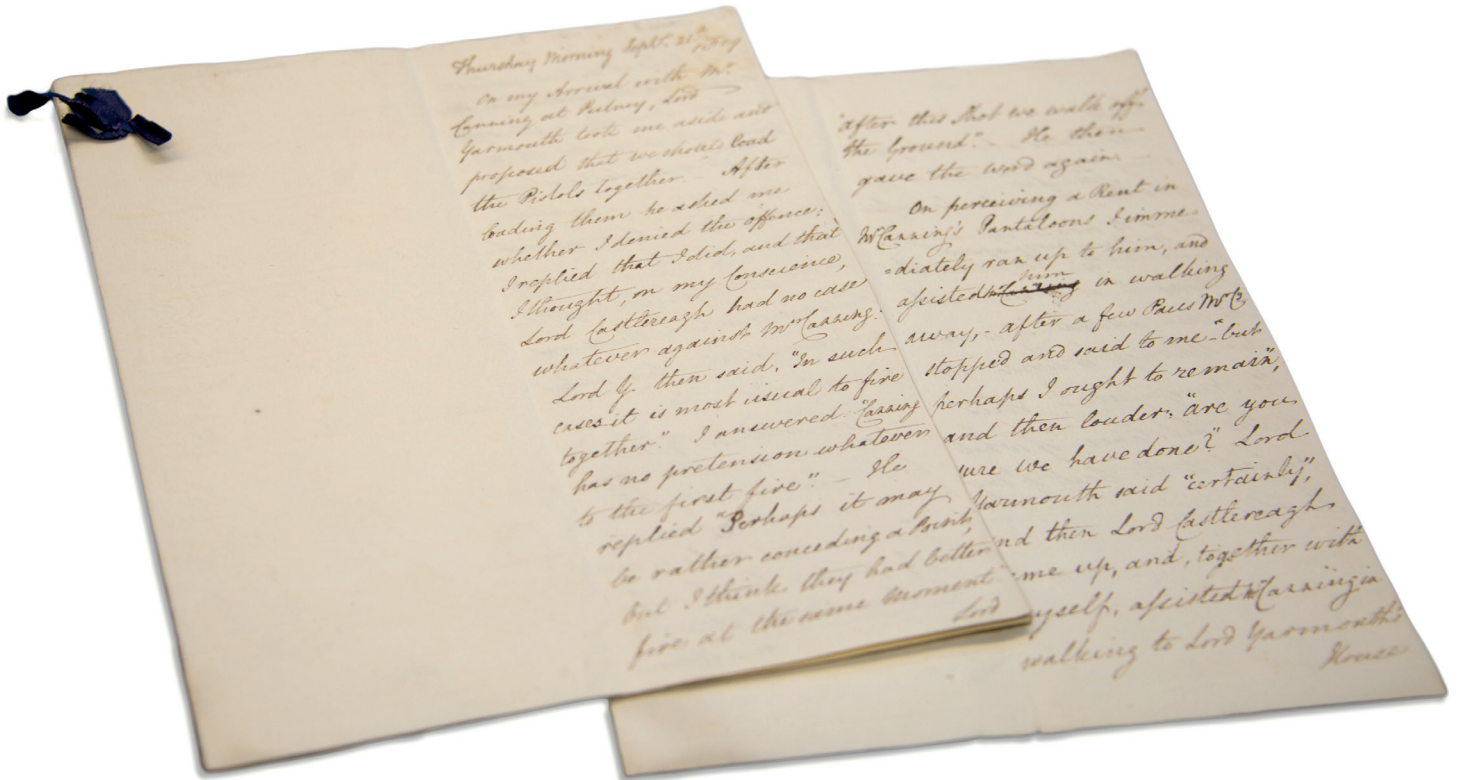 Thursday Morning Septr. 21st 1809
On my Arrival with Mr.
Canning at Putney, Lord
Yarmouth took me aside and
proposed that we should load
the Pistols together. – After
loading them he asked me
whether I denied the offence;
I replied that I did, and that
I thought, on my Conscience,
Lord Castlereagh had no case
whatever against Mr. Canning.
Lord Y. then said, "In such
cases it is most usual to fire
together." I answered "Canning
has no pretension whatever
to the first fire". – He
replied "Perhaps it may
be rather conceding a Point,
but I think they had better
fire at the same moment"
Lord
"after this Shot we walk off
the Ground". – He then
gave the word again. –
On perceiving a Rent in
Mr Canning's Pantaloons I imme-
-diately ran up to him, and
assisted him in walking
away, – after a few Paces Mr C
stopped and said to me – "but
perhaps I ought to remain",
and then louder, "are you
ure we have done?" Lord
Yarmouth said "certainly",
nd then Lord Castlereagh
me up, and, together with
yself, assisted Mr Canning in
walking to Lord Yarmouth's
House